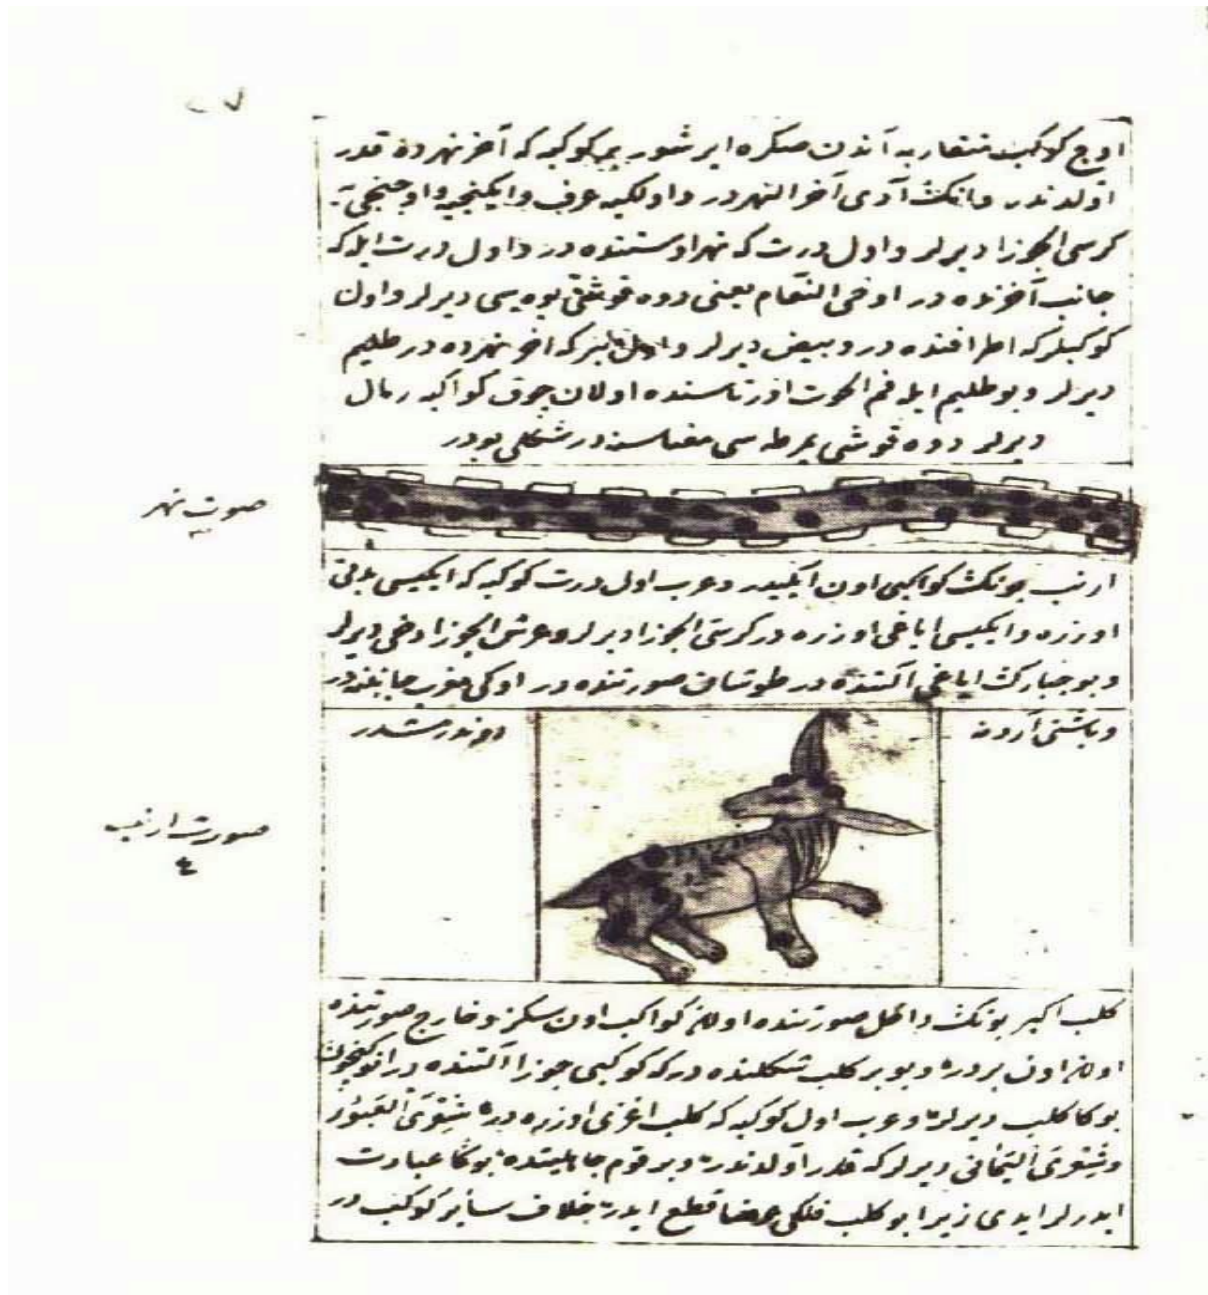 ٢٧
اوج كوكبه متقاربه آندن صكره ايرشور بر كوكبه كه آخر نهرده قدر
اولدندر و انك آدى آخر النهردر و اولكيه عرف و ايكنجيه و اوچنجيه
كرسى الجوزا ديرلر و اول درت كه نهر اوستنده در و اول درت ايله كه
جانب آخرنده در ادحى النعام يعنى دوه قوشى يوه سى ديرلر و اول
كوكبلر كه اطرافنده در و بيض ديرلر و كه اخر نهرده در ظليم
ديرلر و بو ظليم ايله فم الحوت اورتاسنده اولان چوق كواكبه رمال
ديرلر دوه قوشى يمرطه سى معناسنه در شكلى بودر
صورت نهر
ارنب بونك كواكبى اون ايكيدر و عرب اول درت كوكبه كه ايكيسى
اوزره و ايكيسى اياغى اوزره در كرسى الجوزا ديرلر و عرش الجوزا دخى ديرلر
و بو جبارك اياغى آلتنده در طوشان صورتنده در اوكى مغرب جانبنه در
و باشنى آردنه
دوندرمشدر
صورت ارنب
٤
كلب اكبر بونك داخل صورتنده اولان كواكب اون سكز و خارج صورتنده
اولان اون بردر و بو بر كلب شكلنده در كه كوكبى جوزا آلتنده در انوكيچون
بوكا كلب ديرلر و عرب اول كوكبه كه كلب اغزى اوزره در شِعْرَى العَبُور
و شِعْرَى اليَمَانى ديرلر كه قدر اولدندر و بر قوم جاهليتده بوكا عبادت
ايدرلر ايدى زيرا بو كلب فلكى عرضا قطع ايدر خلاف سائر كوكب در